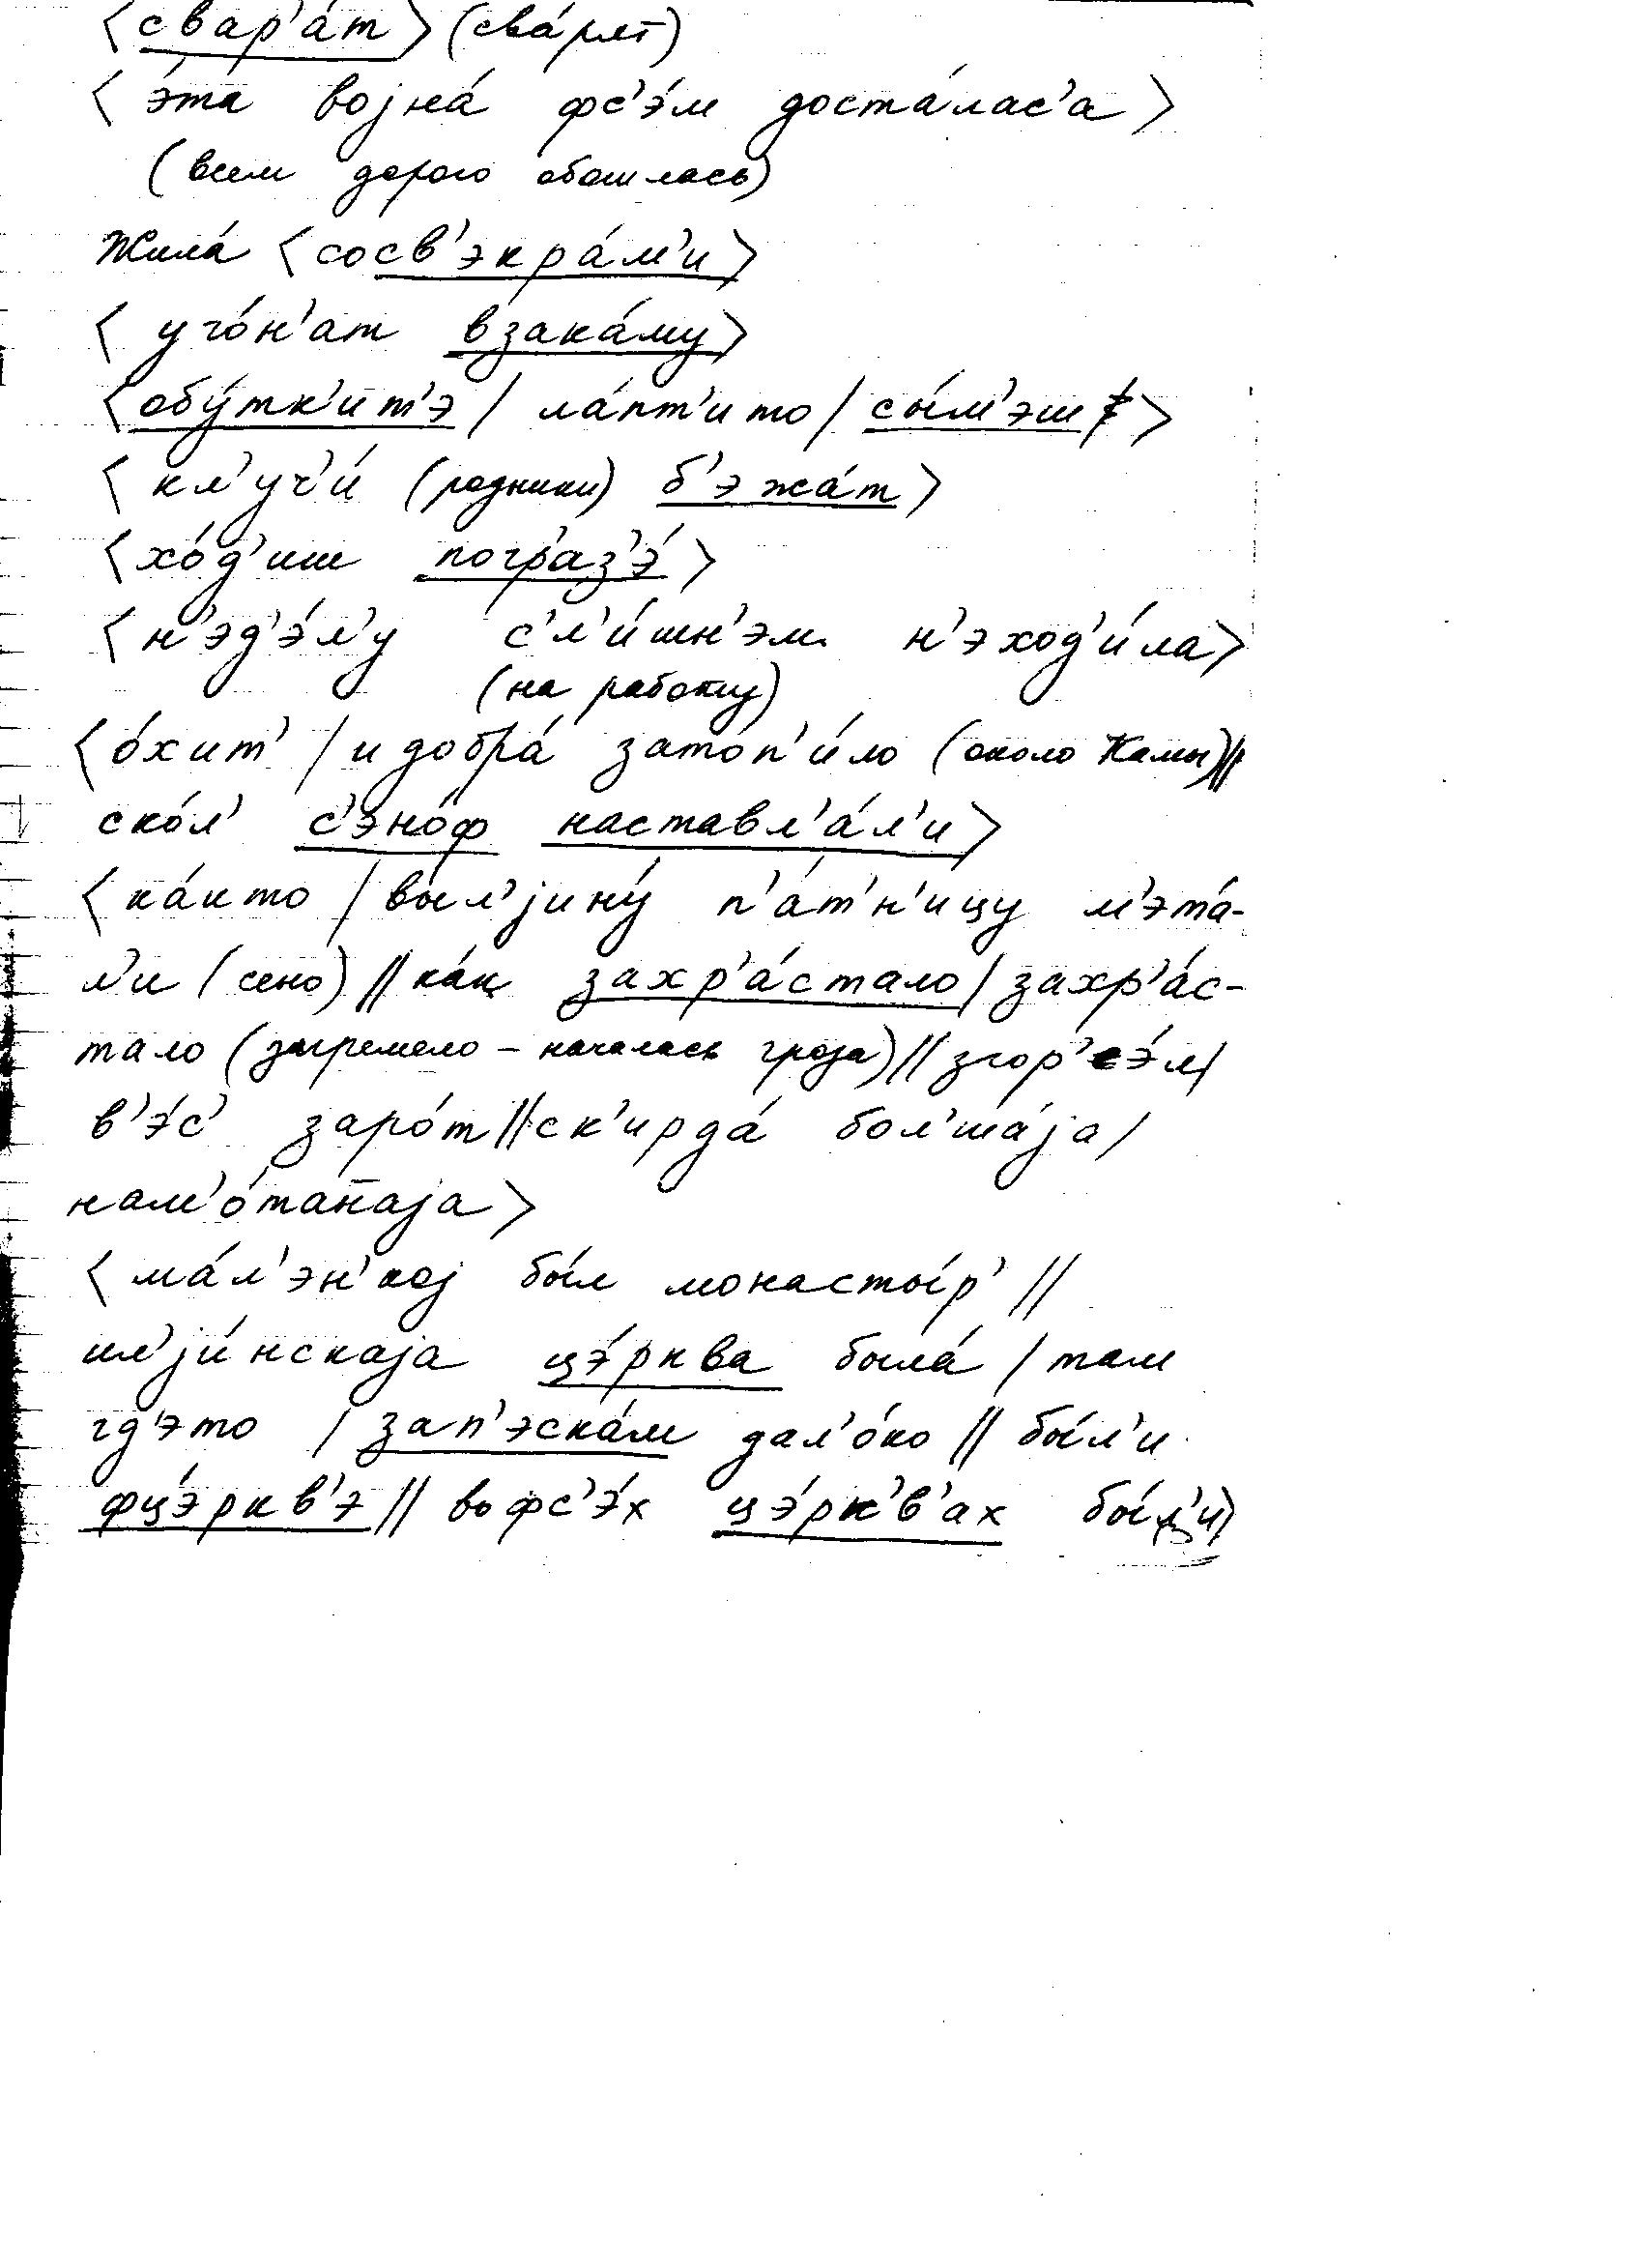 ⟨свар'а́т⟩ (сва́рят)
⟨э́та воjна́ фс'э́м доста́лас'а⟩
(всем дорого обошлась)
Жила́ ⟨сосв'экра́м'и⟩
⟨уго́н'ат взака́му⟩
⟨обу́тк'ит'э / ла́пт'ито / сы́м'эш⟩
⟨кл'уч'и́ (родники) б'эжа́т⟩
⟨хо́д'иш погр'аз'э́⟩
⟨н'эд'э́л'у с'л'и́шн'эм н'эход'и́ла⟩
(на работу)
⟨о́хит' / и добра́ затоп'и́ло (около Камы) //
ско́л' с'эно́ф наставл'а́л'и⟩
⟨ка́кто / выл'jину́ п'а́т'н'ицу м'эта́-
л'и (сено) // ка́к захр'а́стало / захр'а́с-
тало (загремело – началась гроза) // згор'э́л /
в'э́с' заро́т // ск'ирда́ бол'ша́jа /
нам'о́танаjа⟩
⟨ма́л'эн'коj бы́л монасты́р' //
ил'jи́нскаjа цэ́рква была́ / там
гд'это / зап'эска́м дал'о́ко // бы́л'и
фцэ́ркв'э // вофс'э́х цэ́рк'в'ах бы́л'и⟩